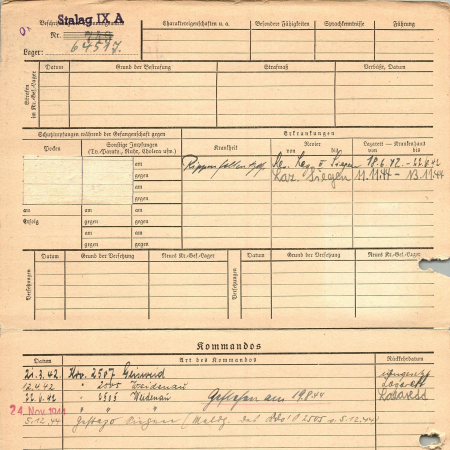 Beschr
Stalag IX A
Charaktereigenschaften u. a.
Besondere Fähigkeiten
Sprachkenntnisse
Führung
Nr.
64517.
Lager:
Strafen im Kr.-Gef.-Lager
Datum
Grund der Bestrafung
Strafmaß
Verbüßt, Datum
Schutzimpfungen während der Gefangenschaft gegen
Erkrankungen
Pocken
Sonstige Impfungen (Ty.-Paratn., Ruhr, Cholera usw.)
Krankheit
Revier
von bis
Lazarett — Krankenhand
von bis
am
gegen
Siegen 18.6.42 - 22.6.42
am
Laz. Siegen 11.11.44 - 13.11.44
gegen
am
gegen
am am
Erfolg gegen
am
gegen
Versetzungen
Datum
Grund der Versetzung
Neues Kr.-Gef.-Lager
Versetzungen
Datum
Grund der Versetzung
Neues Kr.-Gef.-Lager
Kommandos
Datum
Art des Kommandos
Rückkehrdatum
21.3.42. Kdo. 2507
12.4.42 " Weidenau Lazarett
22.6.42 " 2505 Weidenau am 19.8.44 Lazarett
24. Nov. 1944 " "
5.12.44 Gestapo Siegen (Meldg. des Kdo's 2505 v. 5.12.44)